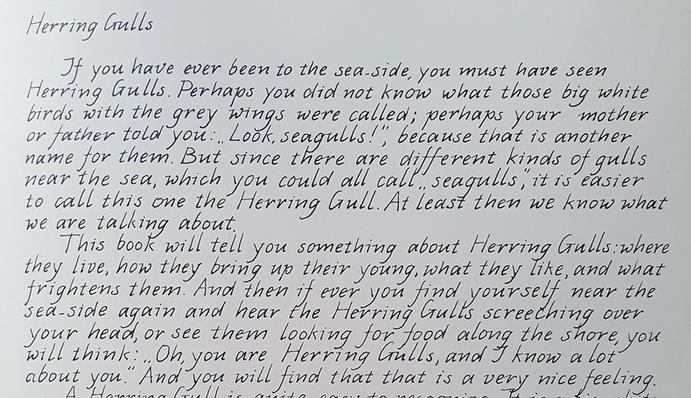 Herring Gulls
If you have ever been to the sea-side, you must have seen
Herring Gulls. Perhaps you did not know what those big white
birds with the grey wings were called; perhaps your mother
or father told you: „Look, seagulls!", because that is another
name for them. But since there are different kinds of gulls
near the sea, which you could all call „seagulls", it is easier
to call this one the Herring Gull. At least then we know what
we are talking about.
This book will tell you something about Herring Gulls: where
they live, how they bring up their young, what they like, and what
frightens them. And then if ever you find yourself near the
sea-side again and hear the Herring Gulls screeching over
your head, or see them looking for food along the shore, you
will think: „Oh, you are Herring Gulls, and I know a lot
about you." And you will find that that is a very nice feeling.
A Herring Gull is quite easy to recognise. It is a